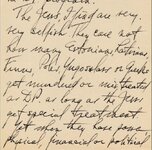 The Jews, I find are very,
very selfish. They care not
how many Estonians, Latvians,
Finns, Poles, Yugoslavs or Greeks
get murdered or mistreated
as D P as long as the Jews
get special treatment.
Yet when they have power
physical, financial or political